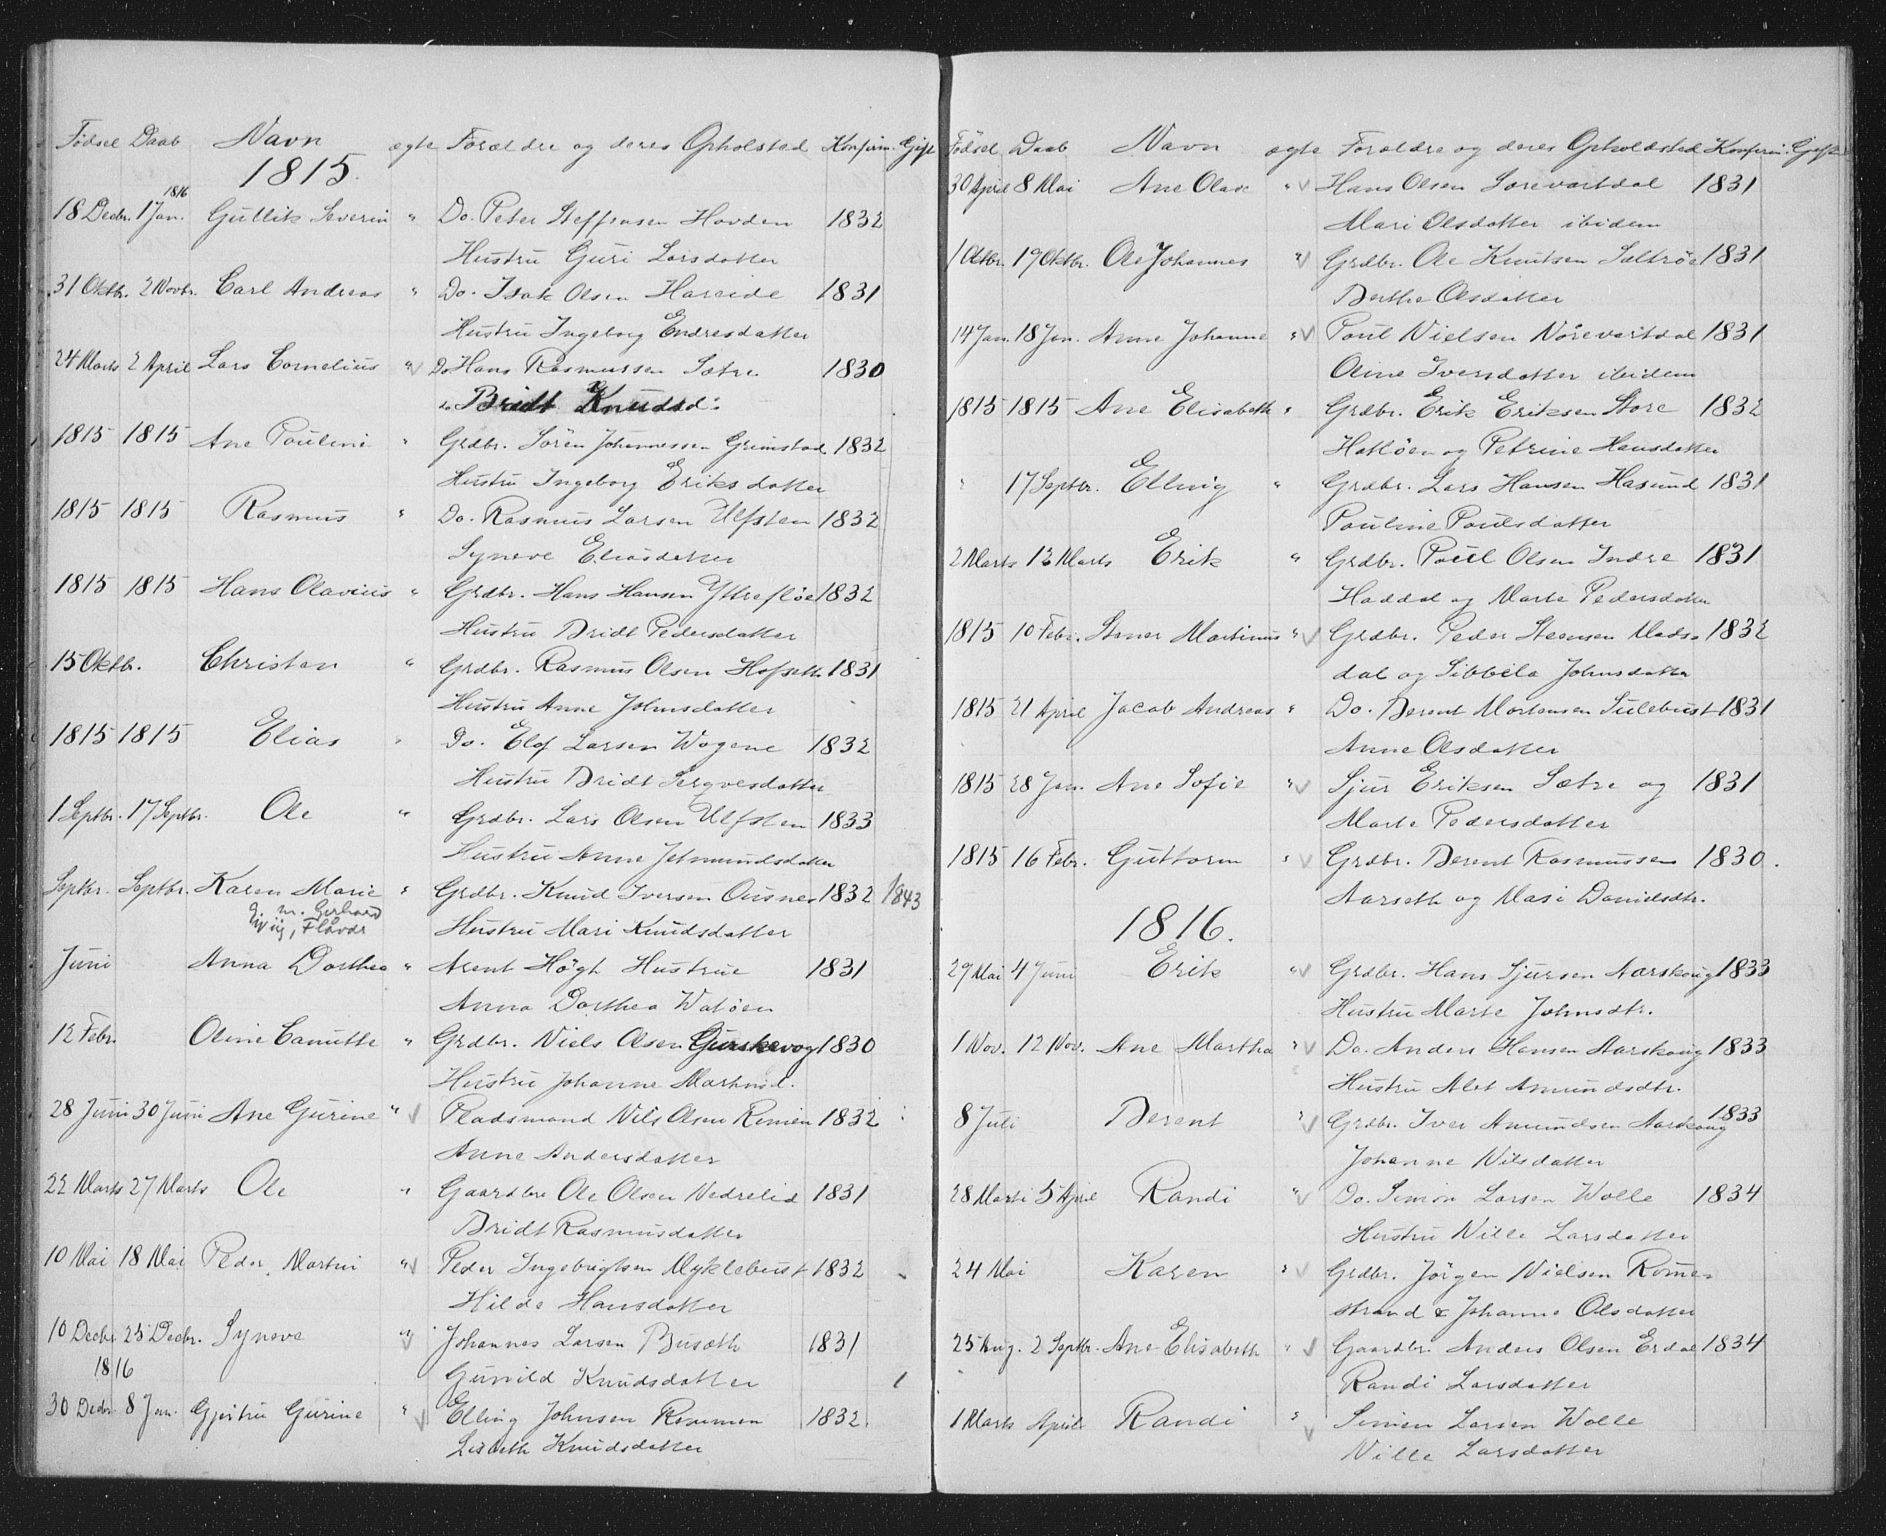 Fødsel Daab Navn ægte Forældre og deres Opholstad Konfirm. Gift
1815.
18 Decbr. 1 Jan. 1816 Gullik Severin " Do. Peter Steffensen Hovden 1832
Hustru Guri Larsdatter
31 Oktbr. 2 Novbr. Carl Andreas " Do. Isak Olsen Hareide 1831
Hustru Ingeborg Endresdatter
24 Marts 2 April Lars Cornelius " Do Hans Rasmussen Sætre 1830
Bridt Knudsd:
1815 1815 Ane Pauline " Grdbr. Sören Johannessen Grimstad 1832
Hustru Ingeborg Eriksdatter
1815 1815 Rasmus " Do. Rasmus Larsen Ulfsten 1832
Syneve Eliasdatter
1815 1815 Hans Olavius " Grdbr. Hans Hansen Yttreflöe 1832
Hustru Bridt Pedersdatter
15 Oktbr. Christen " Grdbr. Rasmus Olsen Hofseth 1831
Hustru Anne Johnsdatter
1815 1815 Elias " Do. Elof Larsen Wogene 1832
Hustru Bridt
1 Septbr. 17 Septbr. Ole " Grdbr. Lars Olsen Ulfsten 1833
Hustru Anne Jetmundsdatter
Septbr. Septbr. Karen Marie " Grdbr. Knud Iversen Ousnes 1832 1843
g. m. Gerhard Hustru Mari Knudsdatter
Juni Anna Dorthea " Arent Högh Hustrue 1831
Anna Dorthea Watöen
12 Febr. Oline Camutte " Grdbr. Niels Olsen Gurskevog 1830
Hustru Johanne Martinsd.
28 Juni 30 Juni Ane Gurine " Pladsmand Nils Olsen Remen 1832
Anne Andersdatter
22 Marts 27 Marts Ole " Gaardbr Ole Olsen Nedrelid 1831
Bridt Rasmusdatter
10 Mai 18 Mai Peder Martin " Peder Ingebrigtsen Myklebust 1832
Hilde Hansdatter
10 Decbr. 25 Decbr. Syneve " Johannes Larsen Busæth 1831
1816 Gunild Knudsdatter
30 Decbr 8 Jan. Gjertru Gurine " Elling Johnsen Remmen 1832
Lisbeth Knudsdatter
Födsel Daab Navn ægte Forældre og deres Opholdsted Konfirm. Gift
30 April 8 Mai Ane Olave " Hans Olsen Sørevartdal 1831
Mari Olsdatter ibidem
1 Octbr. 19 Oktbr. Ole Johannes " Grdbr. Ole Knutsen Saltrøe 1831
Berthe Olsdatter
14 Jan. 18 Jan. Anne Johanne " Poul Nielsen Nörevartdal 1831
Oline Iversdatter ibidem
1815 1815 Ane Elisabeth " Grdbr. Erik Eriksen Store 1832
Hatlöen og Petrine Hansdatter
" 17 Septbr. Elling " Grdbr. Lars Hansen Hasund 1831
Pauline Poulsdatter
2 Marts 13 Marts Erik " Grdbr. Poul Olsen Indre 1831
Haddal og Marte Pedersdatter
1815 10 Febr. Stener Martinus " Grdbr. Peder Steensen Mads- 1832
dal og Sibbela Johnsdatter
1815 21 April Jacob Andreas " Do. Berent Mortensen Tulebust 1831
Anne Olsdatter
1815 28 Jan. Ane Sofie " Sjur Eriksen Sætre og 1831
Marte Pedersdatter
1815 16 Febr. Guttorm " Grdbr. Berent Rasmussen 1830.
Aarseth og Mari Danielsdtr.
1816.
29 Mai 4 Juni Erik " Grdbr. Hans Sjursen Aarskoug 1833
Hustru Marte Johnsdtr.
1 Nov. 12 Nov. Ane Martha " Do. Anders Hansen Aarskoug 1833
Hustru Alet Amundsdtr.
8 Juli Berent " Grdbr. Iver Amundsen Aarskoug 1833
Johanne Nilsdatter
28 Marts 5 April Randi " Do. Simon Larsen Wolle 1834
Hustru Nille Larsdatter
24 Mai Karen " Grdbr. Jörgen Nielsen Romes-
strand & Johanne Olsdatter
25 Aug. 2 Septbr. Ane Elisabeth " Gaardbr. Anders Olsen Erdal 1834
Randi Larsdatter
1 Marts April Randi " Simen Larsen Wolle
Nille Larsdatter